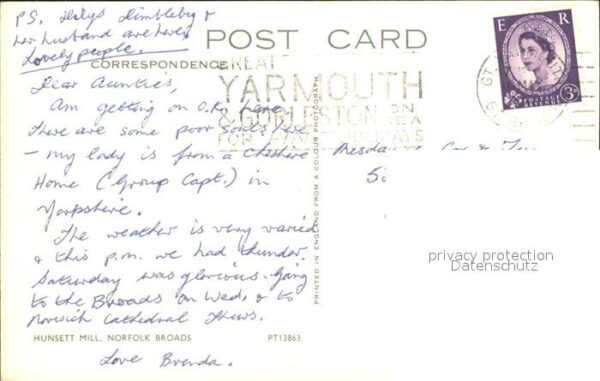 P.S. Dilys Dimbleby &
her husband are here,
Lovely people.
POST CARD
CORRESPONDENCE
GREAT
YARMOUTH
& GORLESTON ON SEA
FOR HOLIDAYS
E R
POSTAGE
REVENUE
3D
Dear Aunties,
Am getting on O.K. here.
There are some poor souls here
— my lady is from a Cheshire
Home (Group Capt.) in
Yorkshire.
The weather is very varied
& this p.m. we had thunder.
Saturday was glorious. Going
to the Broads on Wed. & to
Norwich Cathedral Thurs.
HUNSETT MILL, NORFOLK BROADS
PT13863
Love Brenda.
PRINTED IN ENGLAND FROM A COLOUR PHOTOGRAPH
Mesda
privacy protection
Datenschutz